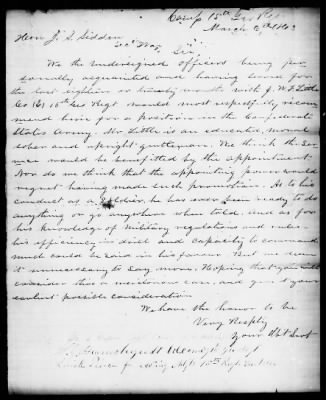 Camp 15th Geo Regt
March 2nd 1863
Hon J. S. Seddon
Sec War, Sir,
We the undersigned officers being per
sonally acquainted and having served for
the last eighteen or twenty months with J. W. F. Little
Co (E) 15th Geo Regt would most respectfully recom
mend him for a position in the Confederate
States Army. Mr Little is an educated, moral
sober and upright gentleman. We think the Ser
vice would be benefitted by the appointment.
Nor do we think that the appointing power would
regret having made such promotion. As to his
conduct as a Soldier, he has ever been ready to do
anything or go anywhere when told, and as for
his knowledge of Military regulations and rules
his efficiency in drill and capacity to command
much could be said in his favour. But we deem
it unnecessary to say more. Hoping that you will
consider this a meritorious case, and give it your
earliest possible consideration
We have the honor to be
Very Respty
Your Obt Servt
15th